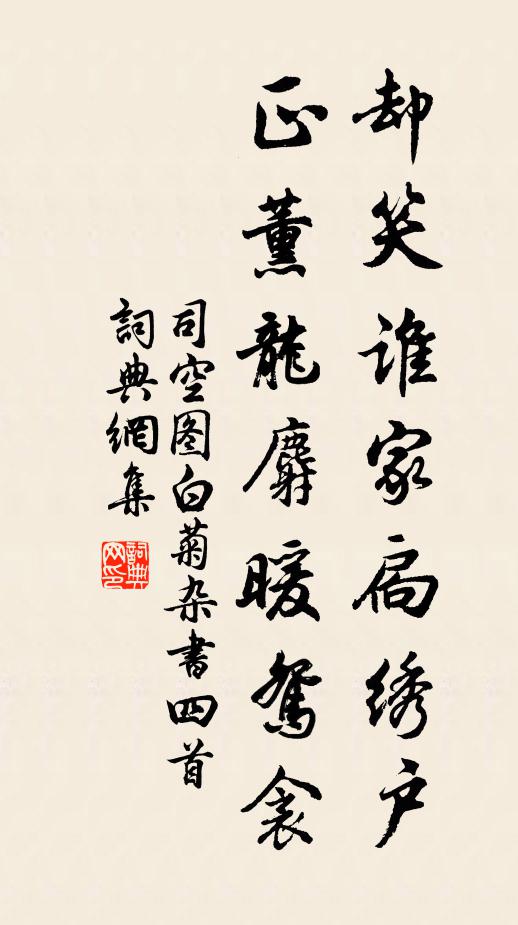 却笑谁家扃绣户
正薰龍麝暖鴛衾
司空图白菊杂書四首
詞典網集
詞典网印